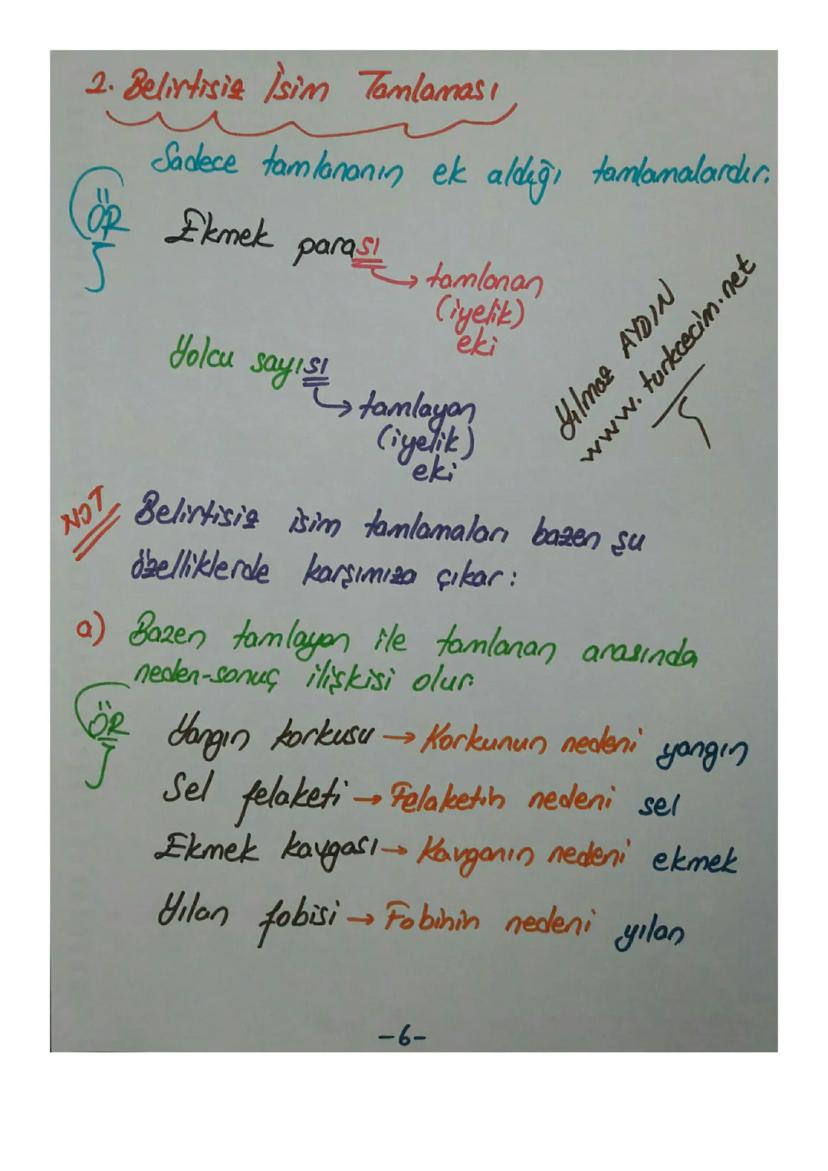 2. Belirtisiz İsim Tamlaması
Sadece tamlananın ek aldığı tamlamalardır.
ÖR
Ekmek parası
tamlanan
(iyelik)
eki
Yolcu sayısı
tamlayan
(iyelik)
eki
Yılmaz AYDIN
www.turkcecim.net
NOT
Belirtisiz isim tamlamaları bazen şu
özelliklerde karşımıza çıkar:
a) Bazen tamlayan ile tamlanan arasında
neden-sonuç ilişkisi olur.
ÖR
Yangın korkusu → Korkunun nedeni yangın
Sel felaketi → Felaketin nedeni sel
Ekmek kavgası → Kavganın nedeni ekmek
Yılan fobisi → Fobinin nedeni yılan
-6-